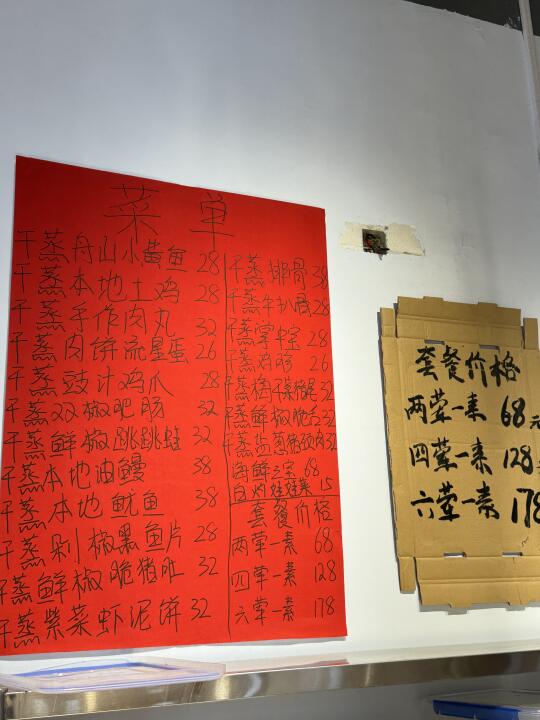 菜单
干蒸舟山小黄鱼 28
干蒸本地土鸡 28
干蒸手作肉丸 32
干蒸肉饼流星蛋 26
干蒸豉汁鸡爪 28
干蒸双椒肥肠 32
干蒸鲜椒跳跳蛙 32
干蒸本地油鳗 38
干蒸本地鱿鱼 38
干蒸剁椒黑鱼片 28
干蒸鲜椒脆猪肚 32
干蒸紫菜虾泥饼 32
干蒸排骨 38
干蒸牛扒 28
干蒸掌中宝 28
干蒸鸡胗 26
干蒸梅干菜猪尾 32
干蒸鲜椒 32
干蒸盐葱 32
海鲜三宝 68
白灼娃娃菜 15
套餐价格
两荤一素 68
四荤一素 128
六荤一素 178
套餐价格
两荤一素 68元
四荤一素 128
六荤一素 178